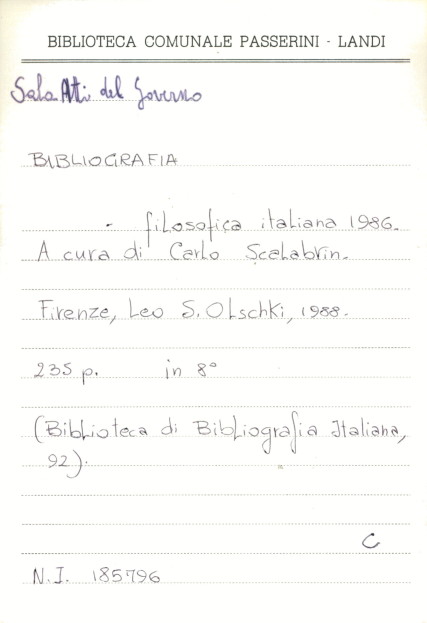 BIBLIOTECA COMUNALE PASSERINI - LANDI
Sala Atti del Governo
BIBLIOGRAFIA
- filosofica italiana 1986.
A cura di Carlo Scalabrin.
Firenze, Leo S. Olschki, 1988.
235 p. in 8°
(Biblioteca di Bibliografia Italiana,
92).
C
N.I. 185796